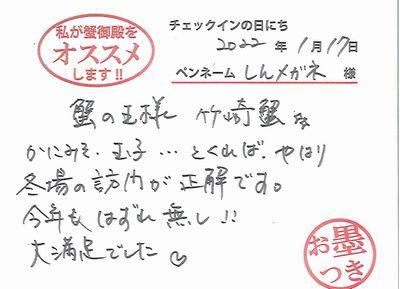 私が蟹御殿を
オススメ
します!!
チェックインの日にち
2022年1月17日
ペンネーム しんメガネ 様
蟹の王様 竹崎蟹
かにみそ・玉子…とくれば、やはり
冬場の訪問が正解です。
今年もはずれ無し!!
大満足でした♡
お墨
つき